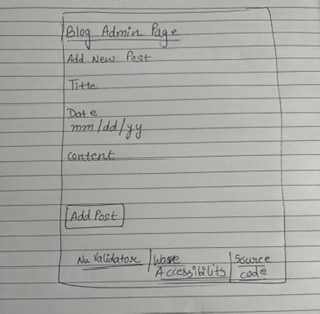 Blog Admin Page
Add New Post
Title
Date
mm/dd/yy
Content
Add Post
Nu Validator
Wave
Accessibility
Source
code